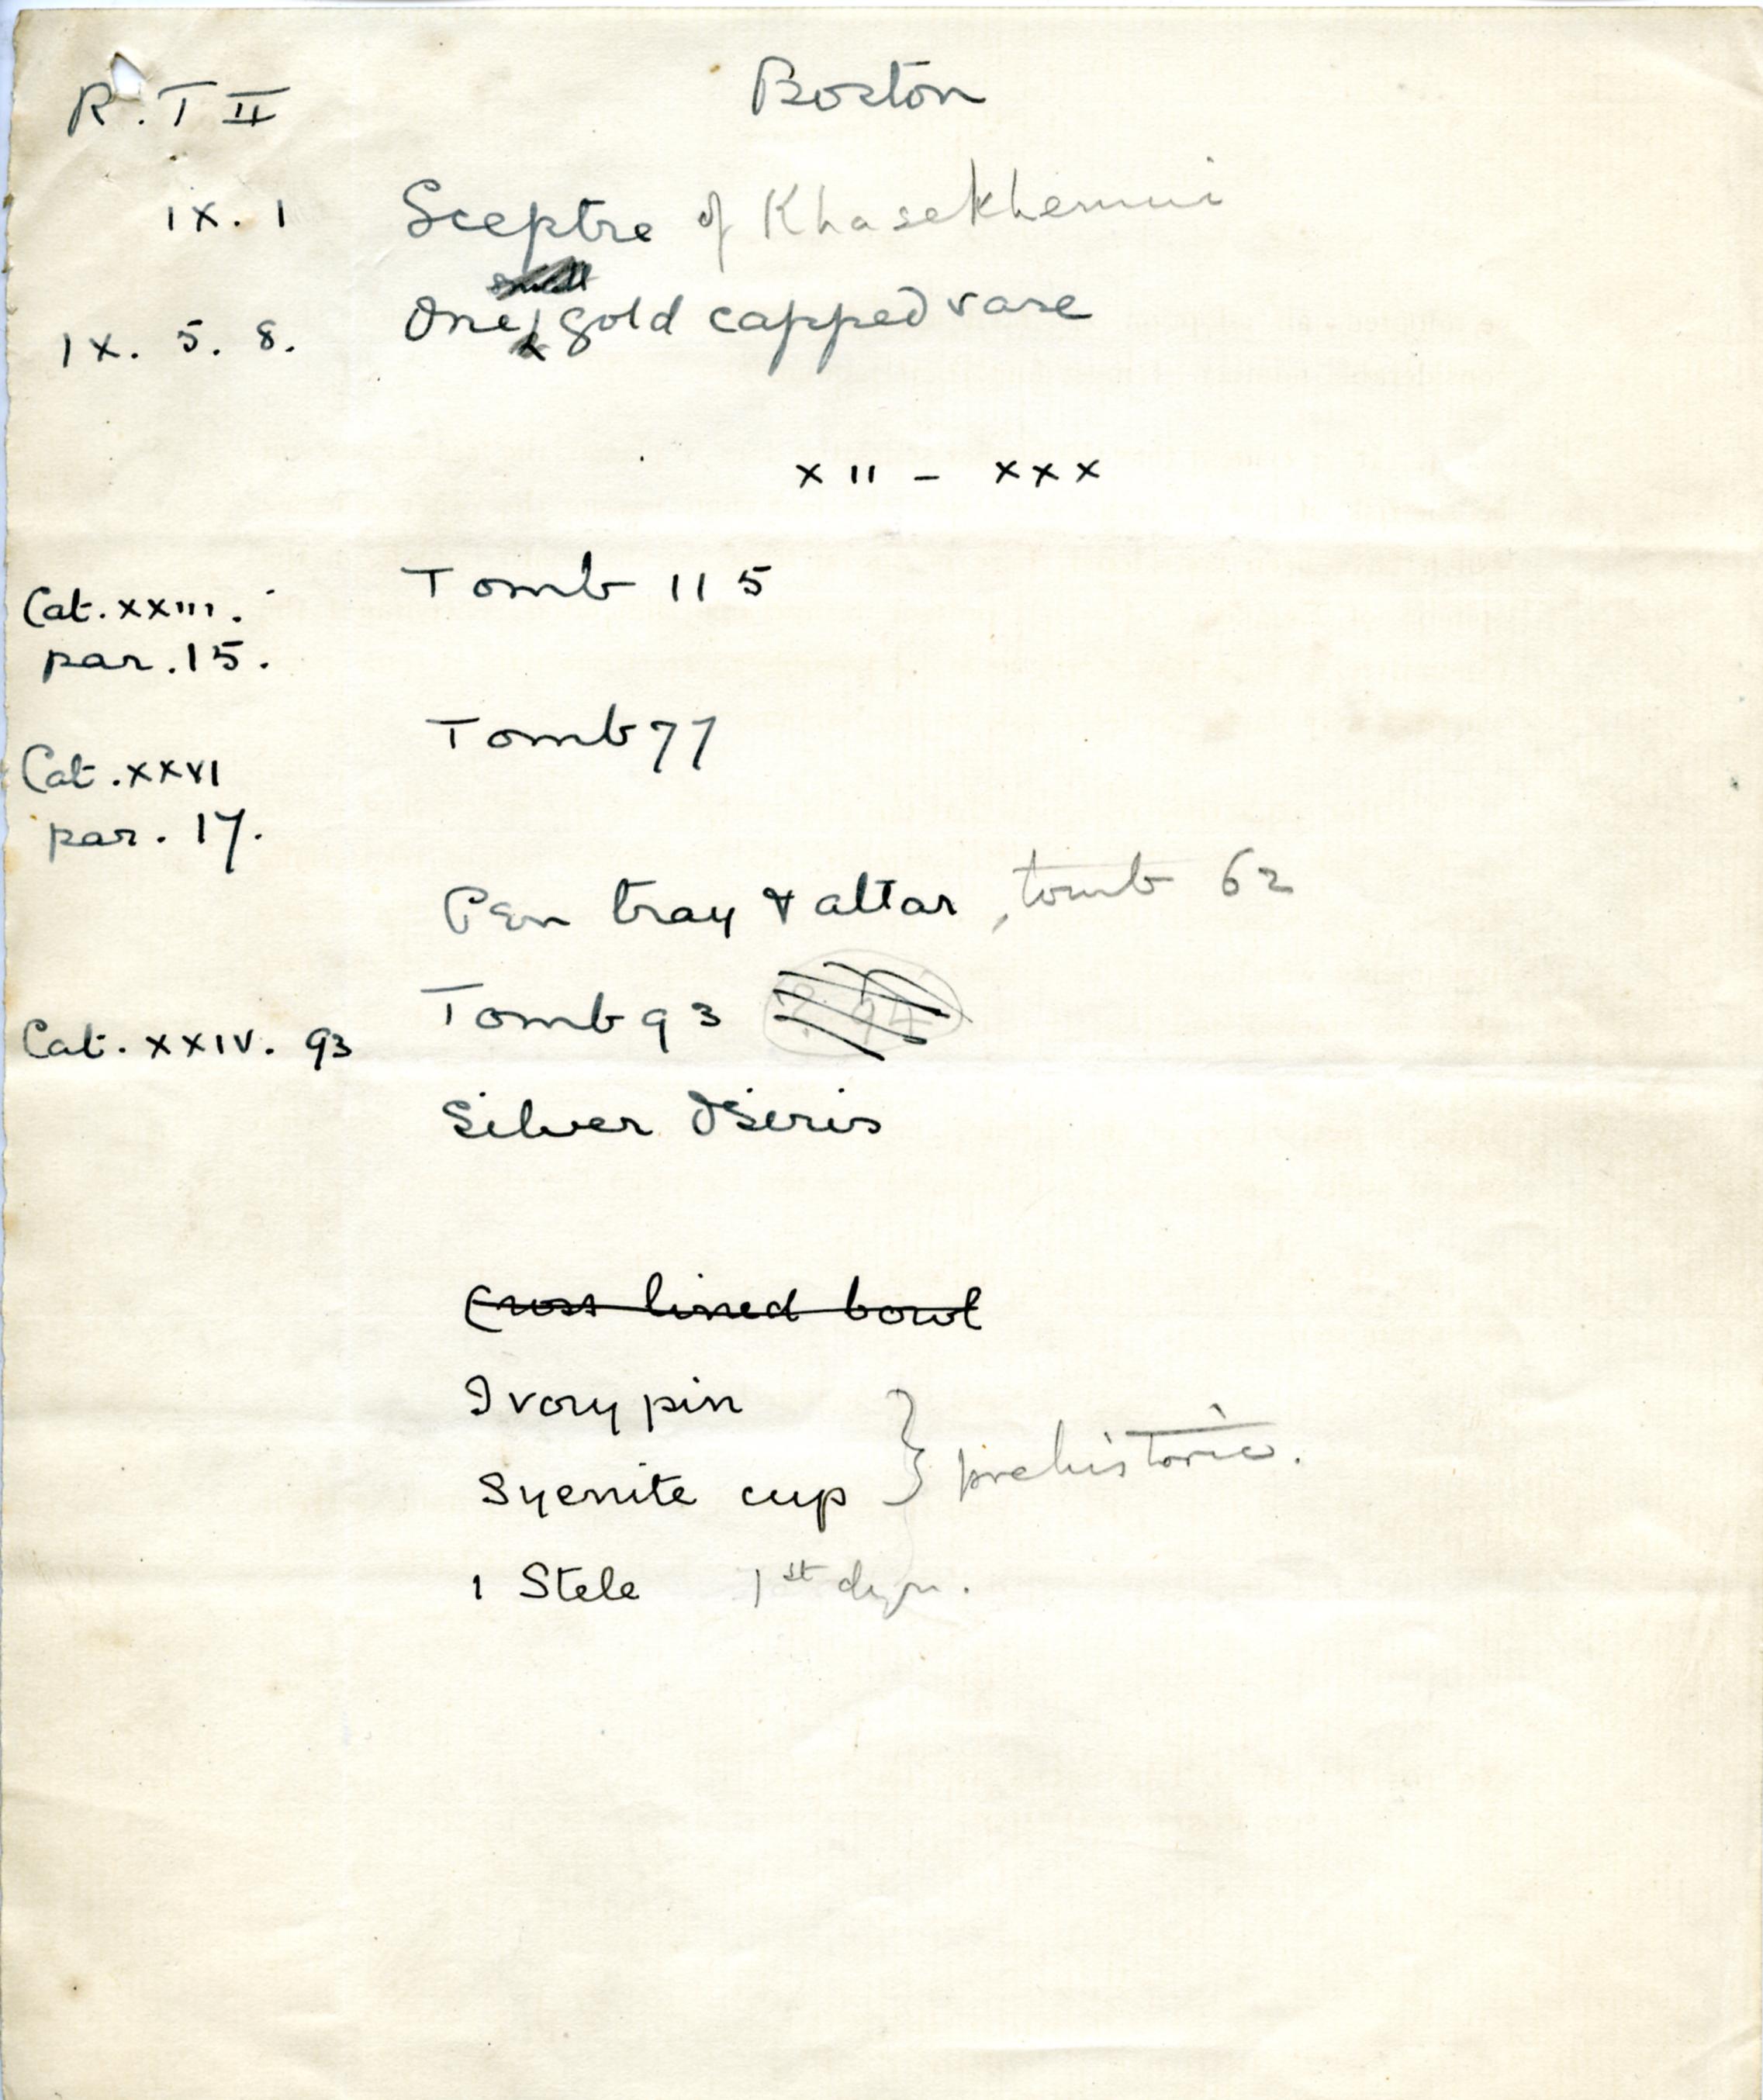 R. T II Boston
IX. 1 Sceptre of Khasekhemui
small
IX. 5. 8. One gold capped vase
XII - XXX
Cat. XXIII. Tomb 115
par. 15.
Tomb 77
Cat. XXVI
par. 17.
Pen tray & altar, tomb 62
Tomb 93 ? 94
Cat. XXIV. 93
Silver Osiris
Cross lined bowl
Ivory pin
} prehistoric.
Syenite cup
1 Stele 1st dyn.